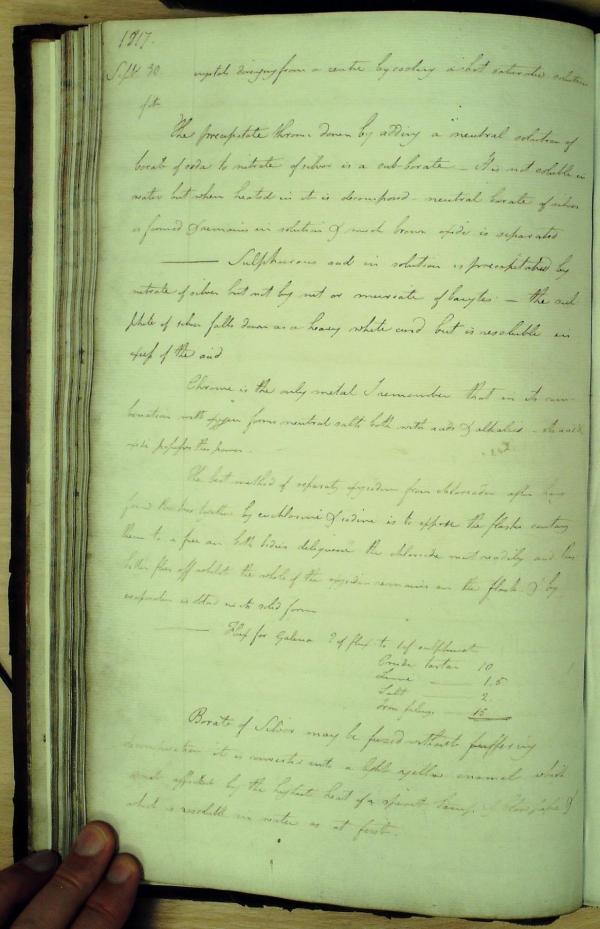 1817.
Septr 30 crystals diverging from a centre by cooling a hot saturated solution
of it
The precipitate thrown down by adding a neutral solution of
borate of soda to nitrate of silver is a sub borate - It is not soluble in
water but when heated in it is decomposed - neutral borate of silver
is formed & remains in solution & much brown oxide is separated
Sulphurous acid in solution is precipitated by
nitrate of silver but not by nit or muriate of barytes - the sul
phite of silver falls down as a heavy white curd but is resoluble in
excess of the acid
Chrome is the only metal I remember that in its com-
bination with oxygen forms neutral salts both with acids & alkalies -
this power.
The best method of separating from after having
formed them both together by euchlorine & iodine is to expose the flasks containg
them to a free air both bodies deliquesce the chloride most readily and
flies off whilst the whole of the remains in the flask & by
evaporation is obtd in its solid form
Flux for Galena 2 of flux to 1 of sulphuret
Crude tartar 10
1.5
Salt 2
Iron filings 15
Borate of Silver may be fused without suffering
decomposition it is converted into a light yellow enamel which
is not affected by the highest heat of a spirit lamp & blow pipe &
which is resoluble in water as at first.